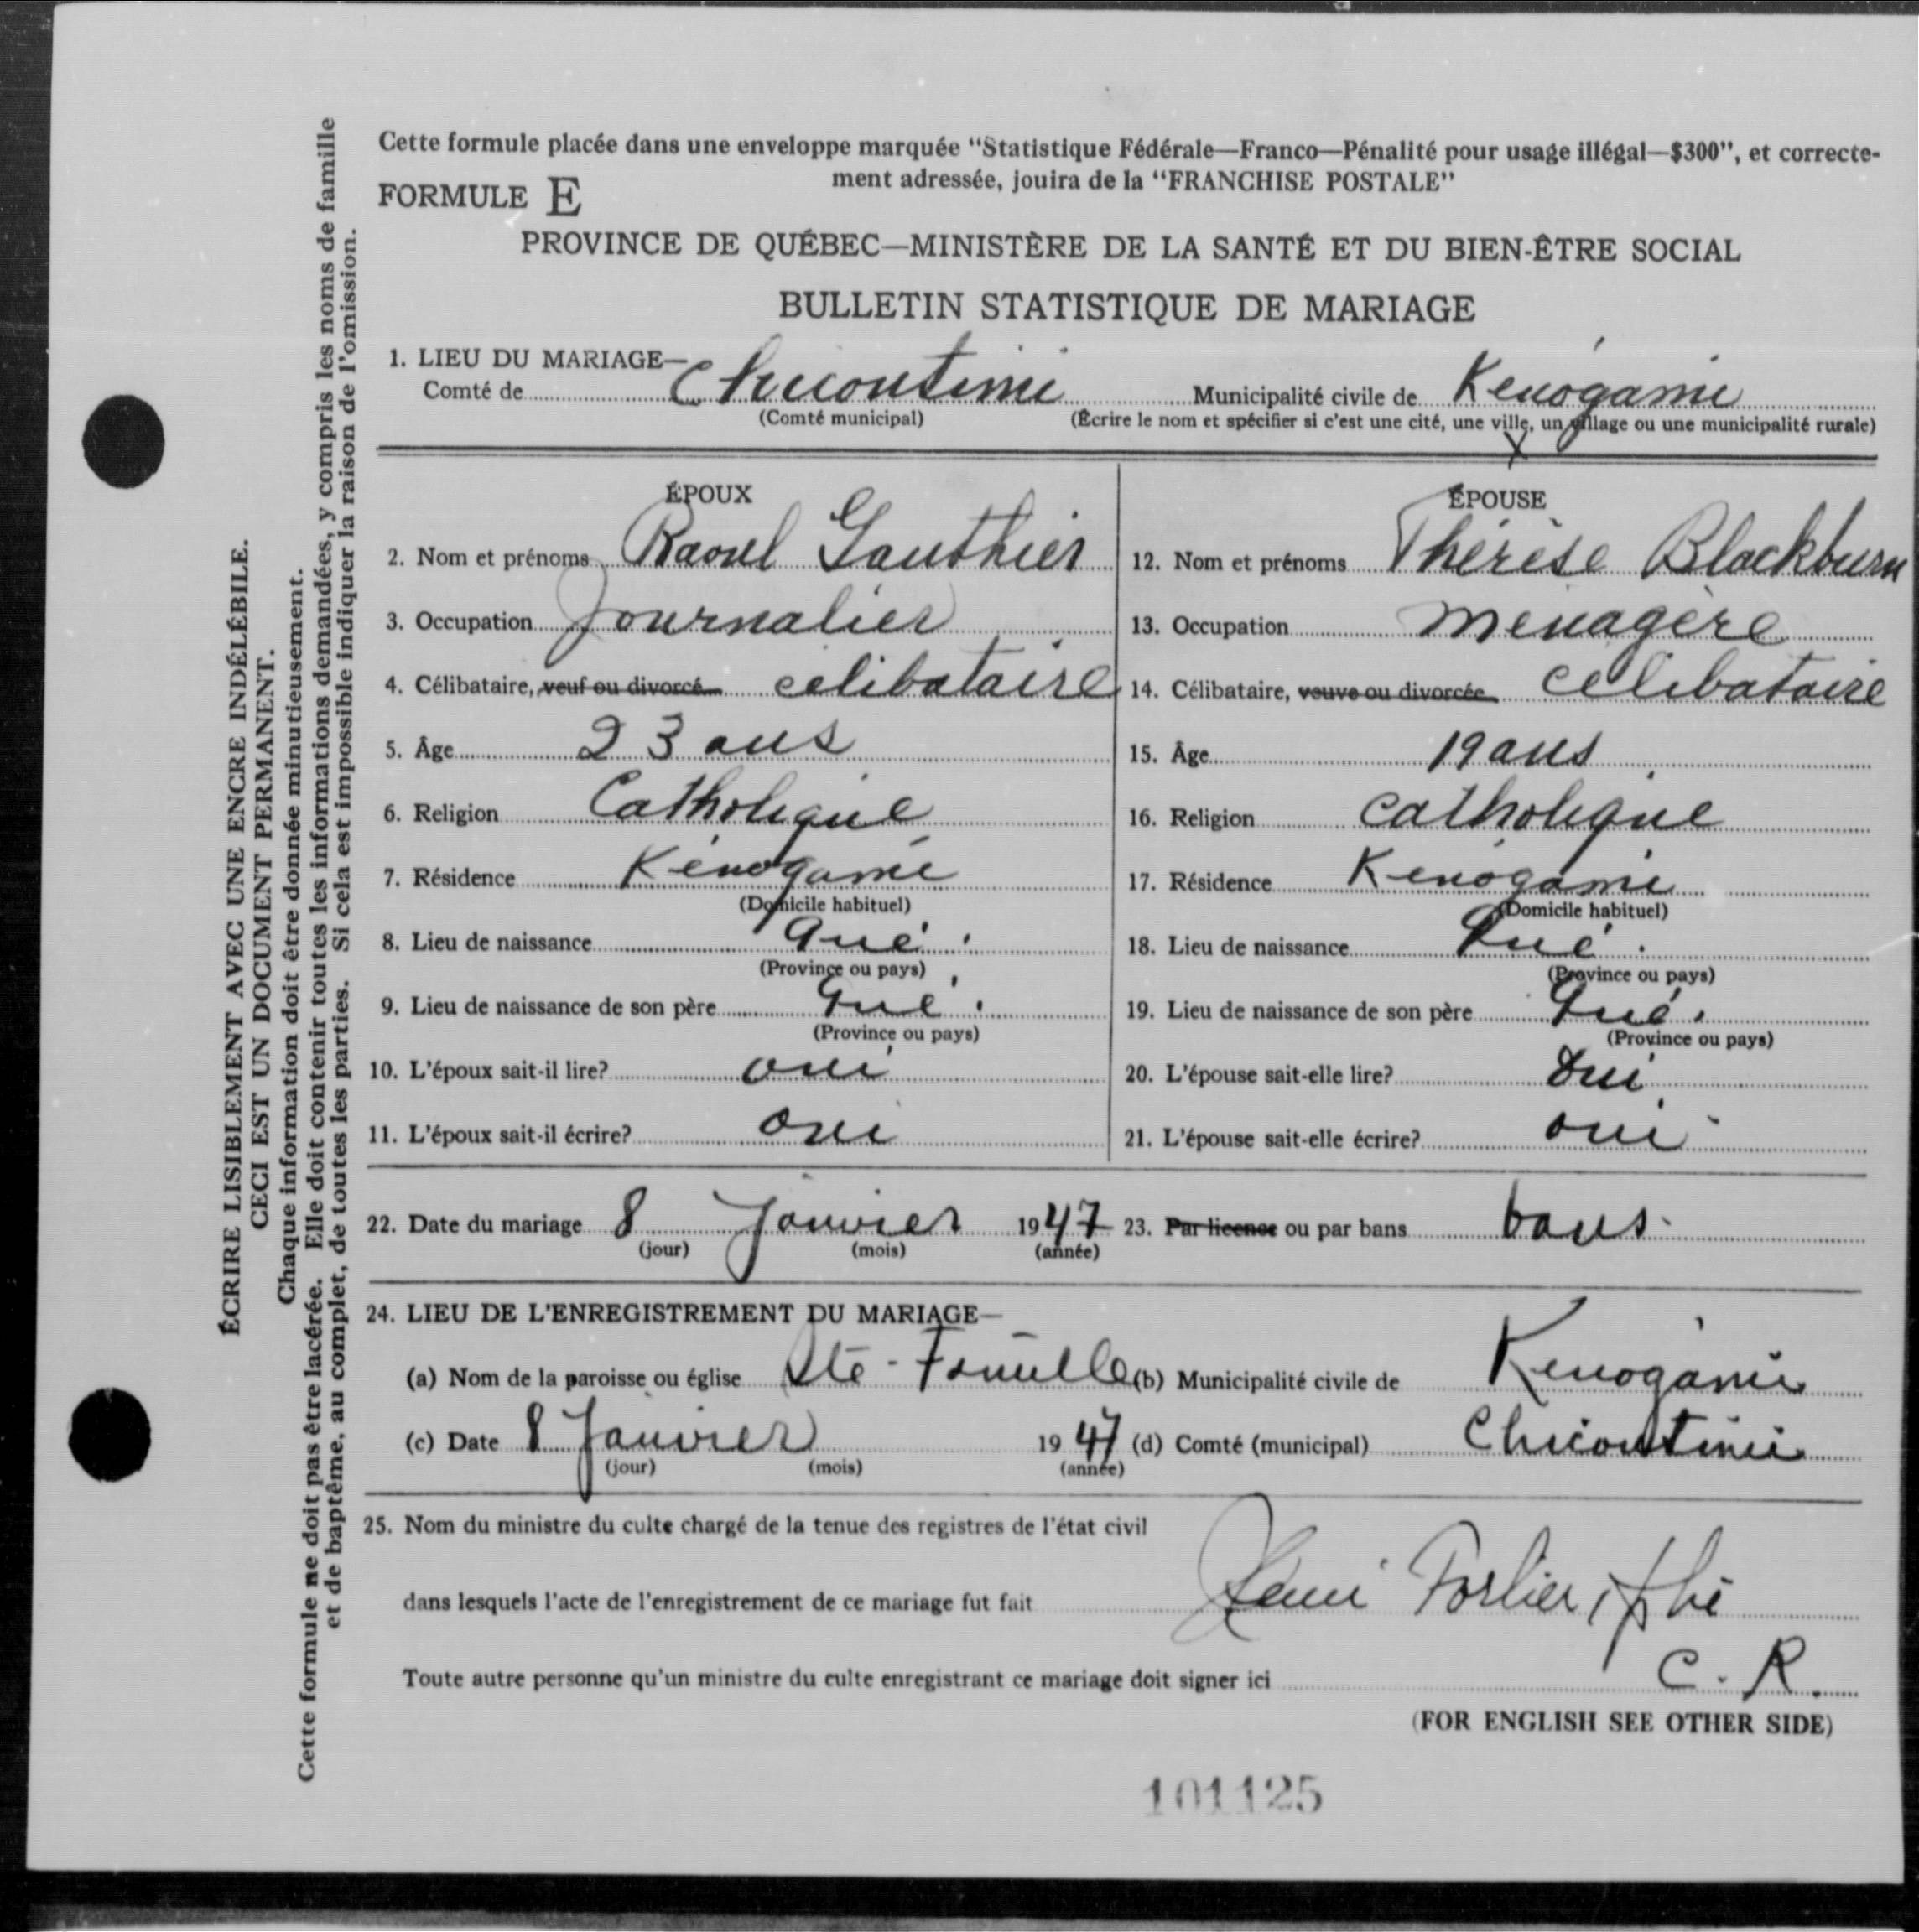 Cette formule placée dans une enveloppe marquée "Statistique Fédérale—Franco—Pénalité pour usage illégal—$300", et correcte-
ment adressée, jouira de la "FRANCHISE POSTALE"
FORMULE E
PROVINCE DE QUÉBEC—MINISTÈRE DE LA SANTÉ ET DU BIEN-ÊTRE SOCIAL
BULLETIN STATISTIQUE DE MARIAGE
1. LIEU DU MARIAGE—
Comté de Chicoutimi Municipalité civile de Kénogami
(Comté municipal) (Écrire le nom et spécifier si c'est une cité, une ville, un village ou une municipalité rurale)
ÉPOUX
2. Nom et prénoms Raoul Gauthier
3. Occupation Journalier
4. Célibataire, veuf ou divorcé célibataire
5. Âge 23 ans
6. Religion Catholique
7. Résidence Kénogami
(Domicile habituel)
8. Lieu de naissance Qué.
(Province ou pays)
9. Lieu de naissance de son père Qué.
(Province ou pays)
10. L'époux sait-il lire? oui
11. L'époux sait-il écrire? oui
ÉPOUSE
12. Nom et prénoms Thérèse Blackburn
13. Occupation Ménagère
14. Célibataire, veuve ou divorcée célibataire
15. Âge 19 ans
16. Religion catholique
17. Résidence Kénogami
(Domicile habituel)
18. Lieu de naissance Qué.
(Province ou pays)
19. Lieu de naissance de son père Qué.
(Province ou pays)
20. L'épouse sait-elle lire? Oui
21. L'épouse sait-elle écrire? oui
22. Date du mariage 8 Janvier 1947 23. Par licence ou par bans bans
(jour) (mois) (année)
24. LIEU DE L'ENREGISTREMENT DU MARIAGE—
(a) Nom de la paroisse ou église Ste-Famille (b) Municipalité civile de Kénogami
(c) Date 8 Janvier 1947 (d) Comté (municipal) Chicoutimi
(jour) (mois) (année)
25. Nom du ministre du culte chargé de la tenue des registres de l'état civil
dans lesquels l'acte de l'enregistrement de ce mariage fut fait
Toute autre personne qu'un ministre du culte enregistrant ce mariage doit signer ici C. R.
(FOR ENGLISH SEE OTHER SIDE)
101125
ÉCRIRE LISIBLEMENT AVEC UNE ENCRE INDÉLÉBILE.
CECI EST UN DOCUMENT PERMANENT.
Chaque information doit être donnée minutieusement.
Cette formule ne doit pas être lacérée. Elle doit contenir toutes les informations demandées, y compris les noms de famille
et de baptême, au complet, de toutes les parties. Si cela est impossible indiquer la raison de l'omission.